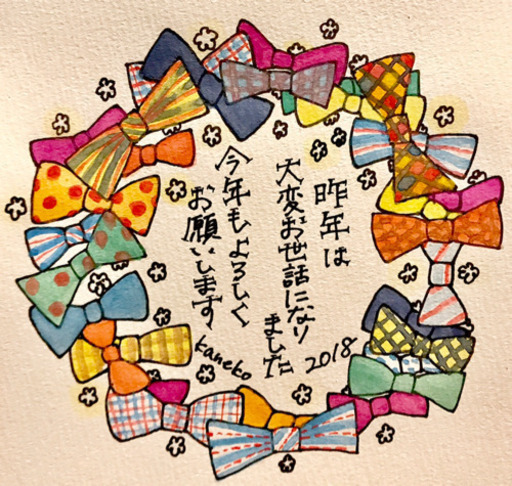 昨年は
大変お世話になり
ました
今年もよろしく
お願いします
kaneko
2018